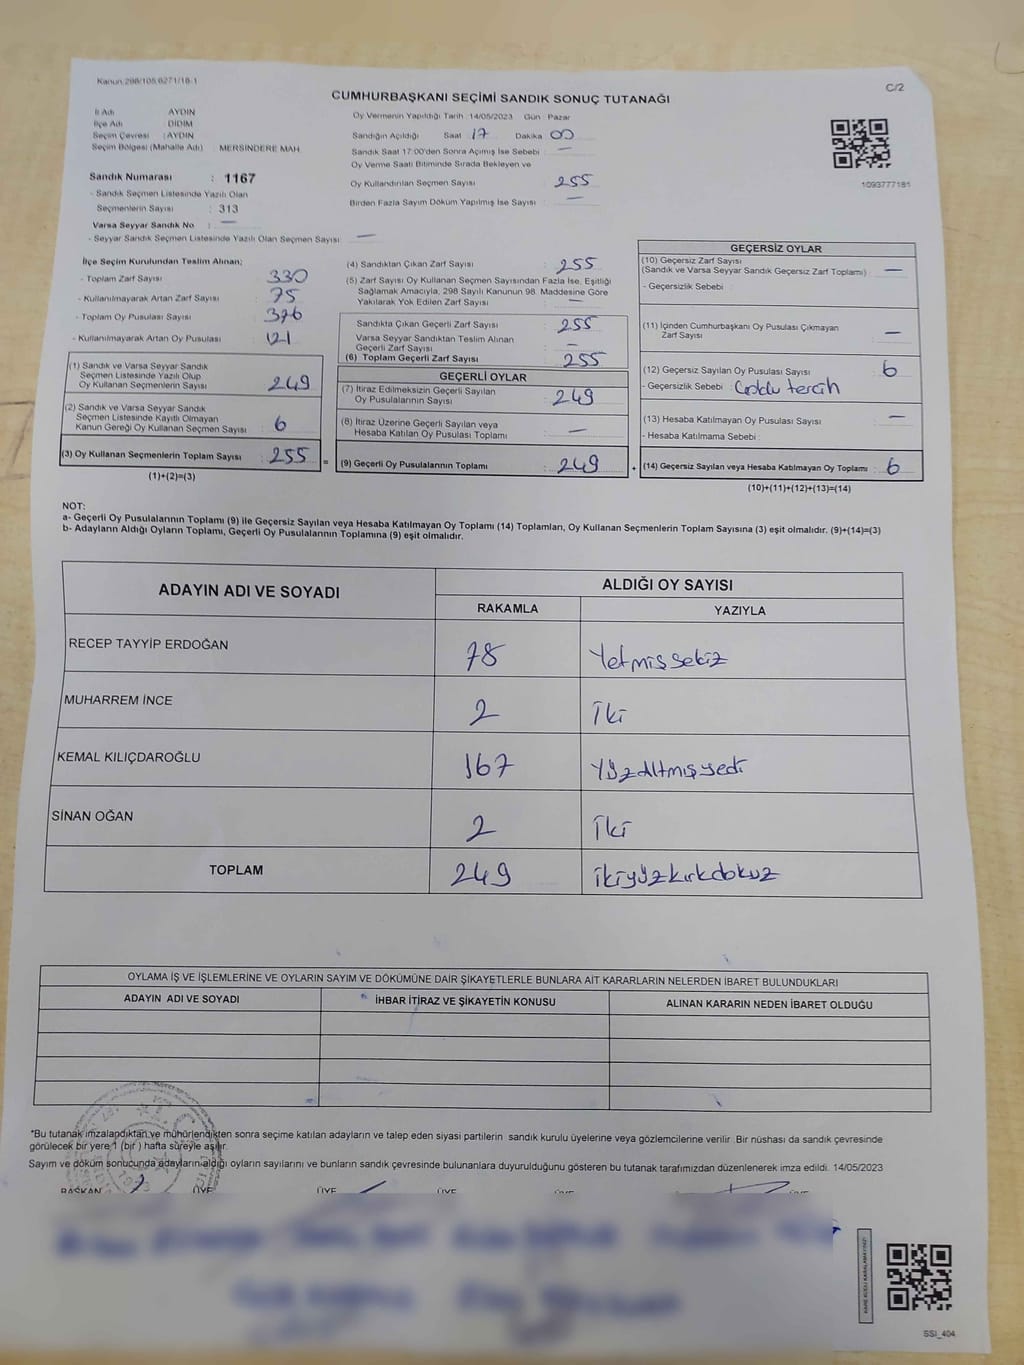 Kanun 298/105,6271/18-1
C/2
CUMHURBAŞKANI SEÇİMİ SANDIK SONUÇ TUTANAĞI
İl Adı AYDIN
İlçe Adı DİDİM
Seçim Çevresi : AYDIN
Seçim Bölgesi (Mahalle Adı) : MERSİNDERE MAH.
Sandık Numarası : 1167
- Sandık Seçmen Listesinde Yazılı Olan
Seçmenlerin Sayısı : 313
Varsa Seyyar Sandık No : —
- Seyyar Sandık Seçmen Listesinde Yazılı Olan Seçmen Sayısı : —
Oy Vermenin Yapıldığı Tarih : 14/05/2023 Gün : Pazar
Sandığın Açıldığı Saat 17 Dakika 00
Sandık Saat 17:00'den Sonra Açımış İse Sebebi : —
Oy Verme Saati Bitiminde Sırada Bekleyen ve
Oy Kullandırılan Seçmen Sayısı : 255
Birden Fazla Sayım Döküm Yapılmış İse Sayısı : —
1093777181
İlçe Seçim Kurulundan Teslim Alınan;
- Toplam Zarf Sayısı : 330
- Kullanılmayarak Artan Zarf Sayısı : 75
- Toplam Oy Pusulası Sayısı : 376
- Kullanılmayarak Artan Oy Pusulası : 121
(1) Sandık ve Varsa Seyyar Sandık
Seçmen Listesinde Yazılı Olup
Oy Kullanan Seçmenlerin Sayısı : 249
(2) Sandık ve Varsa Seyyar Sandık
Seçmen Listesinde Kayıtlı Olmayan
Kanun Gereği Oy Kullanan Seçmen Sayısı : 6
(3) Oy Kullanan Seçmenlerin Toplam Sayısı : 255
(1)+(2)=(3)
(4) Sandıktan Çıkan Zarf Sayısı : 255
(5) Zarf Sayısı Oy Kullanan Seçmen Sayısından Fazla İse, Eşitliği
Sağlamak Amacıyla, 298 Sayılı Kanunun 98. Maddesine Göre
Yakılarak Yok Edilen Zarf Sayısı : —
Sandıkta Çıkan Geçerli Zarf Sayısı : 255
Varsa Seyyar Sandıktan Teslim Alınan
Geçerli Zarf Sayısı : —
(6) Toplam Geçerli Zarf Sayısı : 255
GEÇERLİ OYLAR
(7) İtiraz Edilmeksizin Geçerli Sayılan
Oy Pusulalarının Sayısı : 249
(8) İtiraz Üzerine Geçerli Sayılan veya
Hesaba Katılan Oy Pusulası Toplamı : —
= (9) Geçerli Oy Pusulalarının Toplamı : 249
GEÇERSİZ OYLAR
(10) Geçersiz Zarf Sayısı
(Sandık ve Varsa Seyyar Sandık Geçersiz Zarf Toplamı) : —
- Geçersizlik Sebebi :
(11) İçinden Cumhurbaşkanı Oy Pusulası Çıkmayan
Zarf Sayısı : —
(12) Geçersiz Sayılan Oy Pusulası Sayısı : 6
- Geçersizlik Sebebi : Çoklu tercih
(13) Hesaba Katılmayan Oy Pusulası Sayısı : —
- Hesaba Katılmama Sebebi :
+ (14) Geçersiz Sayılan veya Hesaba Katılmayan Oy Toplamı : 6
(10)+(11)+(12)+(13)=(14)
NOT:
a- Geçerli Oy Pusulalarının Toplamı (9) ile Geçersiz Sayılan veya Hesaba Katılmayan Oy Toplamı (14) Toplamları, Oy Kullanan Seçmenlerin Toplam Sayısına (3) eşit olmalıdır. (9)+(14)=(3)
b- Adayların Aldığı Oyların Toplamı, Geçerli Oy Pusulalarının Toplamına (9) eşit olmalıdır.
ADAYIN ADI VE SOYADI
ALDIĞI OY SAYISI
RAKAMLA YAZIYLA
RECEP TAYYİP ERDOĞAN 78 Yetmiş sekiz
MUHARREM İNCE 2 İki
KEMAL KILIÇDAROĞLU 167 Yüzaltmışyedi
SİNAN OĞAN 2 İki
TOPLAM 249 ikiyüzkırkdokuz
OYLAMA İŞ VE İŞLEMLERİNE VE OYLARIN SAYIM VE DÖKÜMÜNE DAİR ŞİKAYETLERLE BUNLARA AİT KARARLARIN NELERDEN İBARET BULUNDUKLARI
ADAYIN ADI VE SOYADI İHBAR İTİRAZ VE ŞİKAYETİN KONUSU ALINAN KARARIN NEDEN İBARET OLDUĞU
*Bu tutanak imzalandıktan ve mühürlendikten sonra seçime katılan adayların ve talep eden siyasi partilerin sandık kurulu üyelerine veya gözlemcilerine verilir. Bir nüshası da sandık çevresinde
görülecek bir yere 1 (bir ) hafta süreyle aşılır.
Sayım ve döküm sonucunda adayların aldığı oyların sayılarını ve bunların sandık çevresinde bulunanlara duyurulduğunu gösteren bu tutanak tarafımızdan düzenlenerek imza edildi. 14/05/2023
BAŞKAN ÜYE ÜYE ÜYE ÜYE ÜYE
KARE KODU KARALAMAYINIZ!
SSI_404